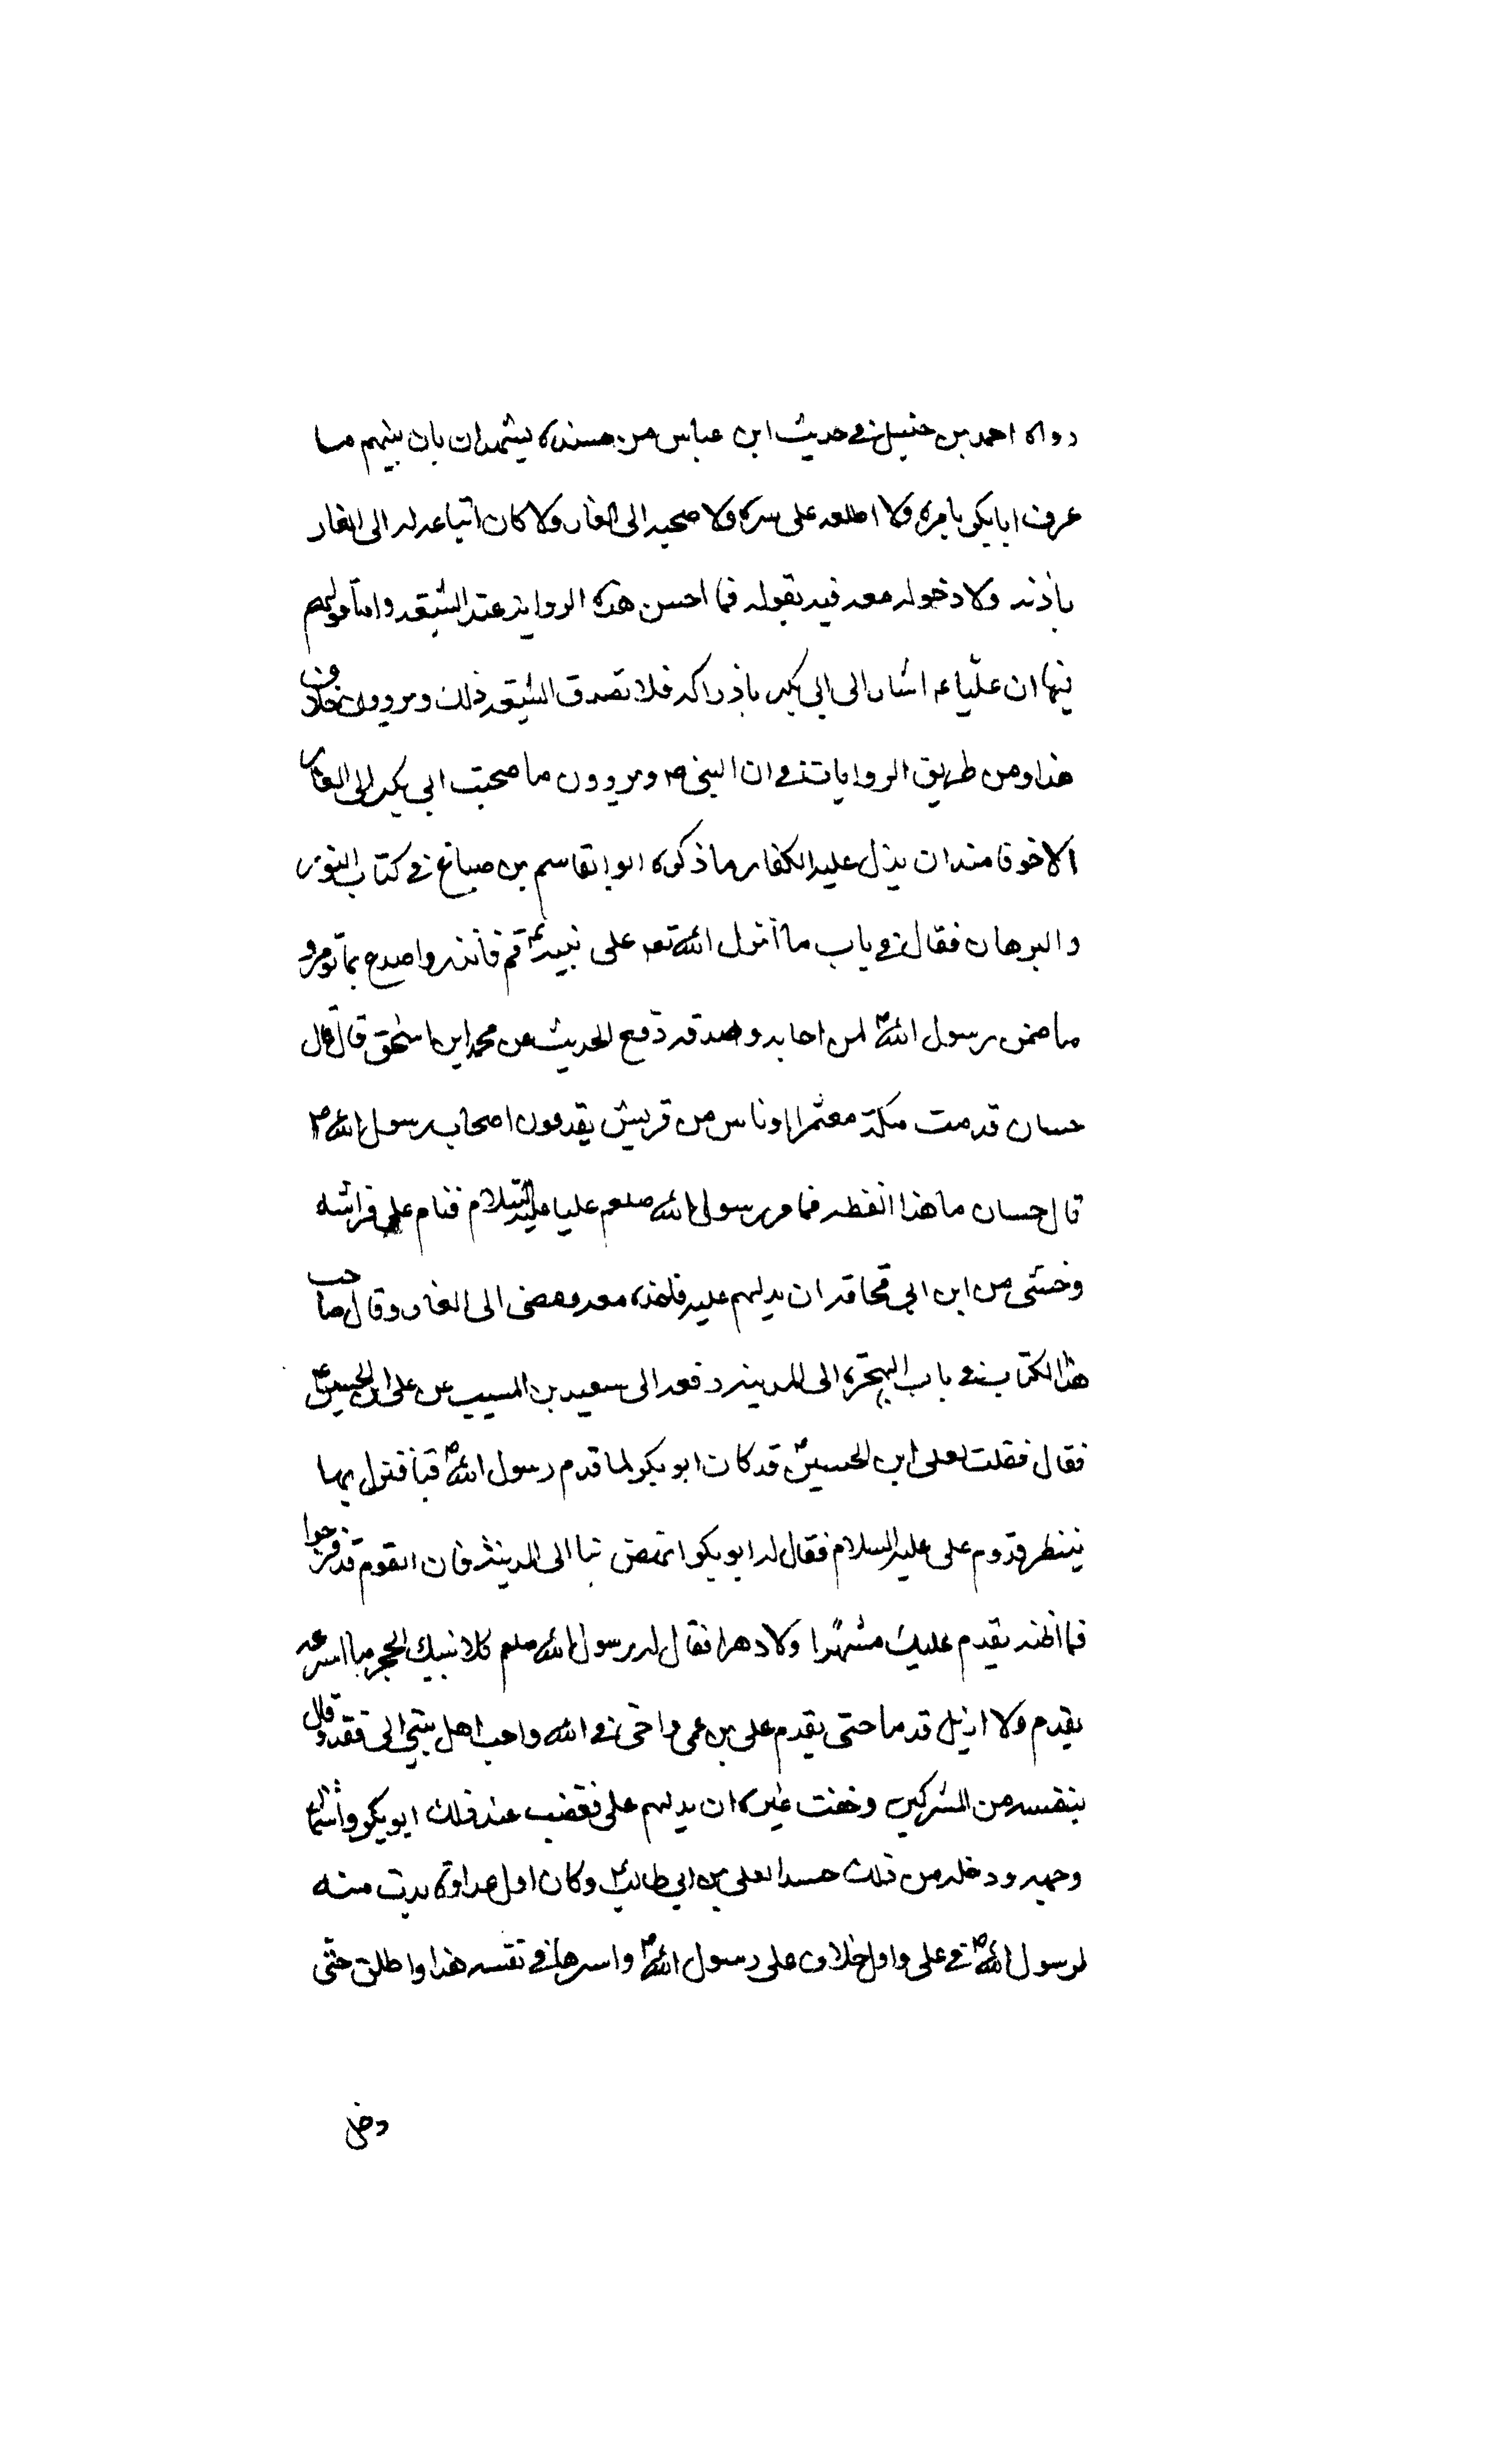 رواه احمد بن حنبل في حديث ابن عباس من مسنده يشهدان بان نبيهم ما
عرف ابابكر بامره ولا اطلعه على سره ولا صحبه الى الغار ولا كان اتباعه له الى الغار
باذنه ولا دخوله معه فيه بقوله فما احسن هذه الرواية عند الشيعة وامّا قولهم
فيها ان عليّا ع اشار الى ابي بكر باذراكه فلا تصدق الشيعة ذلك ويروون خلاف
هذا ومن طريق الروايات في ان النبي ص ويروون ما صحبت ابي بكر الى الغار
الا خوفا منه ان يدل عليه الكفار ما ذكره ابو القاسم بن صباغ في كتاب النور
والبرهان فقال في باب ما أنزل الله تعه على نبيه ص قم فانذر واصدع بما تؤمر و
ما ضمن رسول الله ص لمن اجابه وصدقه رفع الحديث عن محمد ابن اسحق قال قال
حسان قدمت مكة معتمرا وناس من قريش يقدمون اصحاب رسول الله ص
قال حسان ما هذا لفظه فامر رسول الله صلعم عليا عليه السلام فنام على فراشه
وخشى من ابن ابي قحافة ان يدلهم عليه فاخذه معه ومضى الى الغار وقال صاحب
هذا الكتاب في باب الهجرة الى المدينه رفعه الى سعيد بن المسيب عن على ابن الحسين ع
فقال فقلت لعلى ابن الحسين ع قد كان ابو بكر لما قدم رسول الله ص قبا فنزل بها
ينتظر قدوم على عليه السلام فقال له ابو بكر انهض بنا الى المدينة فان القوم قد فرحوا
فما اظنه يقدم عليك شهرا ولا دهرا فقال له رسول الله صلعم كلا ما اسرعه
يقدم ولا ازيل قدما حتى يقدم على بن عمى واخى في الله واحب اهل بيتي الى فقد وقال
بنفسه من المشركين وخفت غيره ان يدلهم على فغضب عند ذلك ابو بكر واشماز
وجهه ودخله من ذلك حسدا لعلى بن ابي طالب ع وكان اول عداوة بدت منه
لرسول الله ص في على واول خلاف على رسول الله ص واسرها في نفسه هذا واطلق حتى
دخل